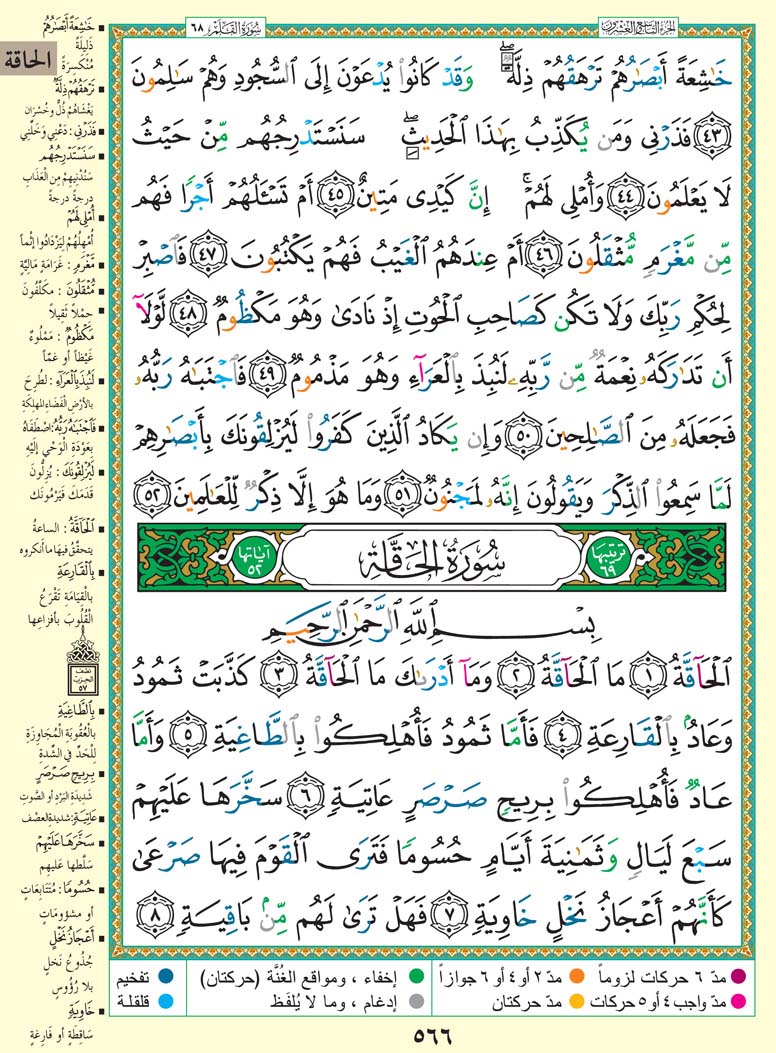 الجزء التاسع والعشرون
سورة القلم ٦٨
خَٰشِعَةً أَبْصَٰرُهُمْ تَرْهَقُهُمْ ذِلَّةٌۖ وَقَدْ كَانُوا۟ يُدْعَوْنَ إِلَى ٱلسُّجُودِ وَهُمْ سَٰلِمُونَ
﴿٤٣﴾ فَذَرْنِى وَمَن يُكَذِّبُ بِهَٰذَا ٱلْحَدِيثِۖ سَنَسْتَدْرِجُهُم مِّنْ حَيْثُ
لَا يَعْلَمُونَ ﴿٤٤﴾ وَأُمْلِى لَهُمْۚ إِنَّ كَيْدِى مَتِينٌ ﴿٤٥﴾ أَمْ تَسْـَٔلُهُمْ أَجْرًا فَهُم
مِّن مَّغْرَمٍ مُّثْقَلُونَ ﴿٤٦﴾ أَمْ عِندَهُمُ ٱلْغَيْبُ فَهُمْ يَكْتُبُونَ ﴿٤٧﴾ فَٱصْبِرْ
لِحُكْمِ رَبِّكَ وَلَا تَكُن كَصَاحِبِ ٱلْحُوتِ إِذْ نَادَىٰ وَهُوَ مَكْظُومٌ ﴿٤٨﴾ لَّوْلَآ
أَن تَدَٰرَكَهُۥ نِعْمَةٌ مِّن رَّبِّهِۦ لَنُبِذَ بِٱلْعَرَآءِ وَهُوَ مَذْمُومٌ ﴿٤٩﴾ فَٱجْتَبَٰهُ رَبُّهُۥ
فَجَعَلَهُۥ مِنَ ٱلصَّٰلِحِينَ ﴿٥٠﴾ وَإِن يَكَادُ ٱلَّذِينَ كَفَرُوا۟ لَيُزْلِقُونَكَ بِأَبْصَٰرِهِمْ
لَمَّا سَمِعُوا۟ ٱلذِّكْرَ وَيَقُولُونَ إِنَّهُۥ لَمَجْنُونٌ ﴿٥١﴾ وَمَا هُوَ إِلَّا ذِكْرٌ لِّلْعَٰلَمِينَ ﴿٥٢﴾
ترتيبها ٦٩ سُورَةُ الحَاقَّةِ آياتها ٥٢
بِسْمِ ٱللَّهِ ٱلرَّحْمَٰنِ ٱلرَّحِيمِ
ٱلْحَآقَّةُ ﴿١﴾ مَا ٱلْحَآقَّةُ ﴿٢﴾ وَمَآ أَدْرَىٰكَ مَا ٱلْحَآقَّةُ ﴿٣﴾ كَذَّبَتْ ثَمُودُ
وَعَادٌۢ بِٱلْقَارِعَةِ ﴿٤﴾ فَأَمَّا ثَمُودُ فَأُهْلِكُوا۟ بِٱلطَّاغِيَةِ ﴿٥﴾ وَأَمَّا
عَادٌ فَأُهْلِكُوا۟ بِرِيحٍ صَرْصَرٍ عَاتِيَةٍ ﴿٦﴾ سَخَّرَهَا عَلَيْهِمْ
سَبْعَ لَيَالٍ وَثَمَٰنِيَةَ أَيَّامٍ حُسُومًا فَتَرَى ٱلْقَوْمَ فِيهَا صَرْعَىٰ
كَأَنَّهُمْ أَعْجَازُ نَخْلٍ خَاوِيَةٍ ﴿٧﴾ فَهَلْ تَرَىٰ لَهُم مِّنۢ بَاقِيَةٍ ﴿٨﴾
الحاقة
خَٰشِعَةً أَبْصَٰرُهُمْ
ذَلِيلَةً
مُنْكَسِرَةً
تَرْهَقُهُمْ ذِلَّةٌ
يَغْشَاهُمْ ذُلٌّ وخُسْرَان
فَذَرْنِى : دَعْنِي وَخَلِّنِي
سَنَسْتَدْرِجُهُم
سَنُدْنِيهِم مِنَ العَذَابِ
درجةً درجةً
أُمْلِى لَهُمْ
أُمْهِلُهُمْ لِيَزْدَادُوا إِثْماً
مَّغْرَمٍ : غَرَامَةٍ مَالِيَّةٍ
مُّثْقَلُونَ : مكلَّفُونَ
حملاً ثقيلاً
مَكْظُومٌ : مَمْلُوءٌ
غَيْظاً أو غمّاً
لَنُبِذَ بِٱلْعَرَآءِ : لَطُرِحَ
بالأرْضِ الفَضَاءِ المهلِكةِ
فَٱجْتَبَٰهُ رَبُّهُۥ : اصْطَفَاهُ
بِعَوْدَةِ الوَحْيِ إلَيْهِ
لَيُزْلِقُونَكَ : يُزِلُّونَ
قدَمَكَ فَيَرْمُونَكَ
ٱلْحَآقَّةُ : الساعةُ
يتحقَّقُ فيها ما أنكروه
بِٱلْقَارِعَةِ
بالْقِيامَةِ تَقْرَعُ
الْقُلُوبَ بأفزاعِها
نصف
الحزب
٥٧
بِٱلطَّاغِيَةِ
بالعُقُوبَةِ المُجَاوِزَةِ
لِلْحَدِّ في الشِّدَةِ
بِرِيحٍ صَرْصَرٍ
شَدِيدَةِ البَرْدِ أو الصَّوْتِ
عَاتِيَةٍ : شديدة العصْف
سَخَّرَهَا عَلَيْهِمْ
سَلَّطها عَليهم
حُسُومًا : مُتَتَابِعَاتٍ
أو مشؤوماتٍ
أَعْجَازُ نَخْلٍ
جُذُوعُ نَخلٍ
بلا رُؤُوسٍ
خَاوِيَةٍ
سَاقِطَةٍ أو فَارِغَةٍ
مدّ ٦ حركات لزوماً مدّ ٢ أو ٤ أو ٦ جوازاً إخفاء ، ومواقع الغُنَّة (حركتان) تفخيم
مدّ واجب ٤ أو ٥ حركات مدّ حركتان إدغام ، وما لا يُلفَظ قلقلة
٥٦٦